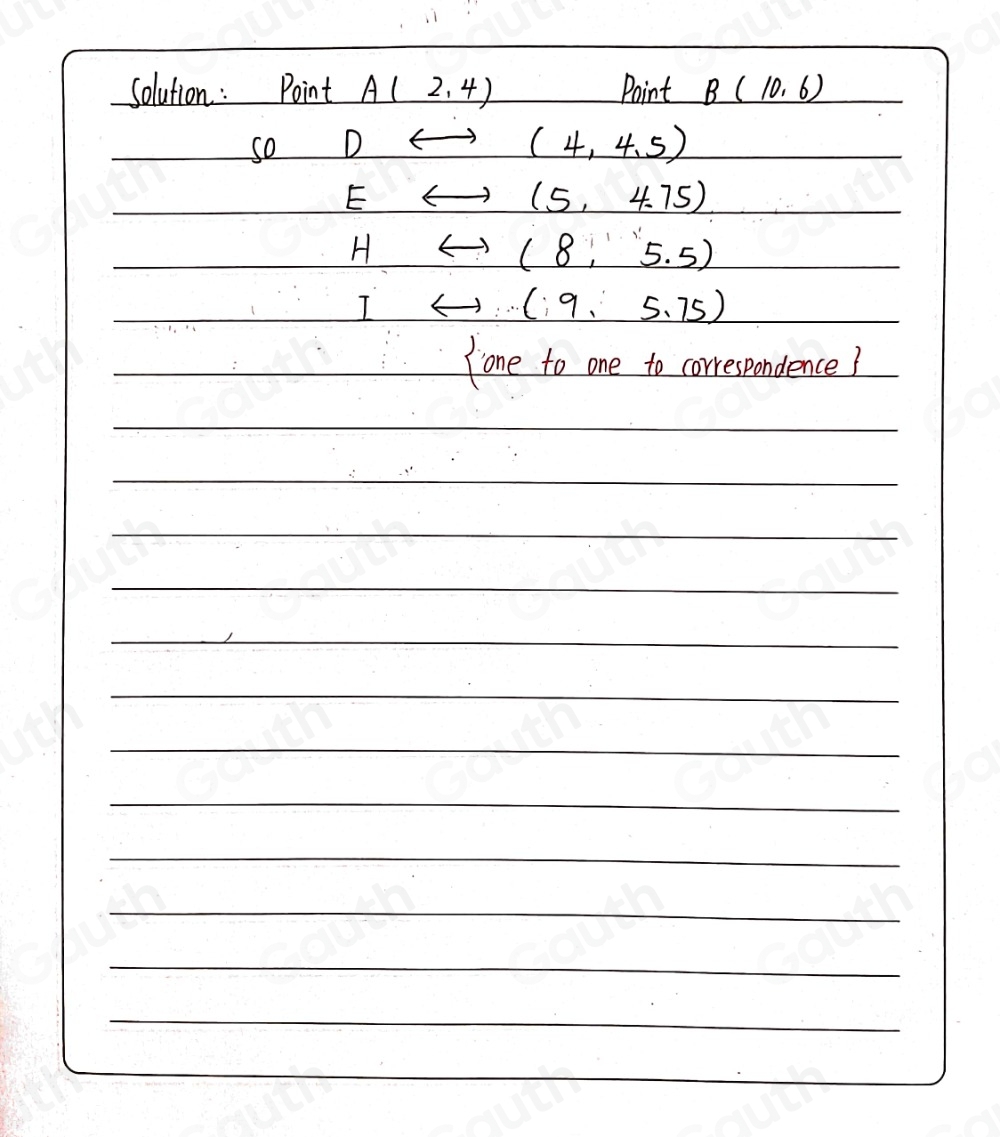 Solution: Point A ( 2, 4) Point B ( 10, 6)
so D ⟷ ( 4, 4.5)
E ⟷ (5, 4.75)
H ⟷ ( 8, 5.5)
I ⟷ ( 9, 5.75)
{one to one to correspondence}
Gauth